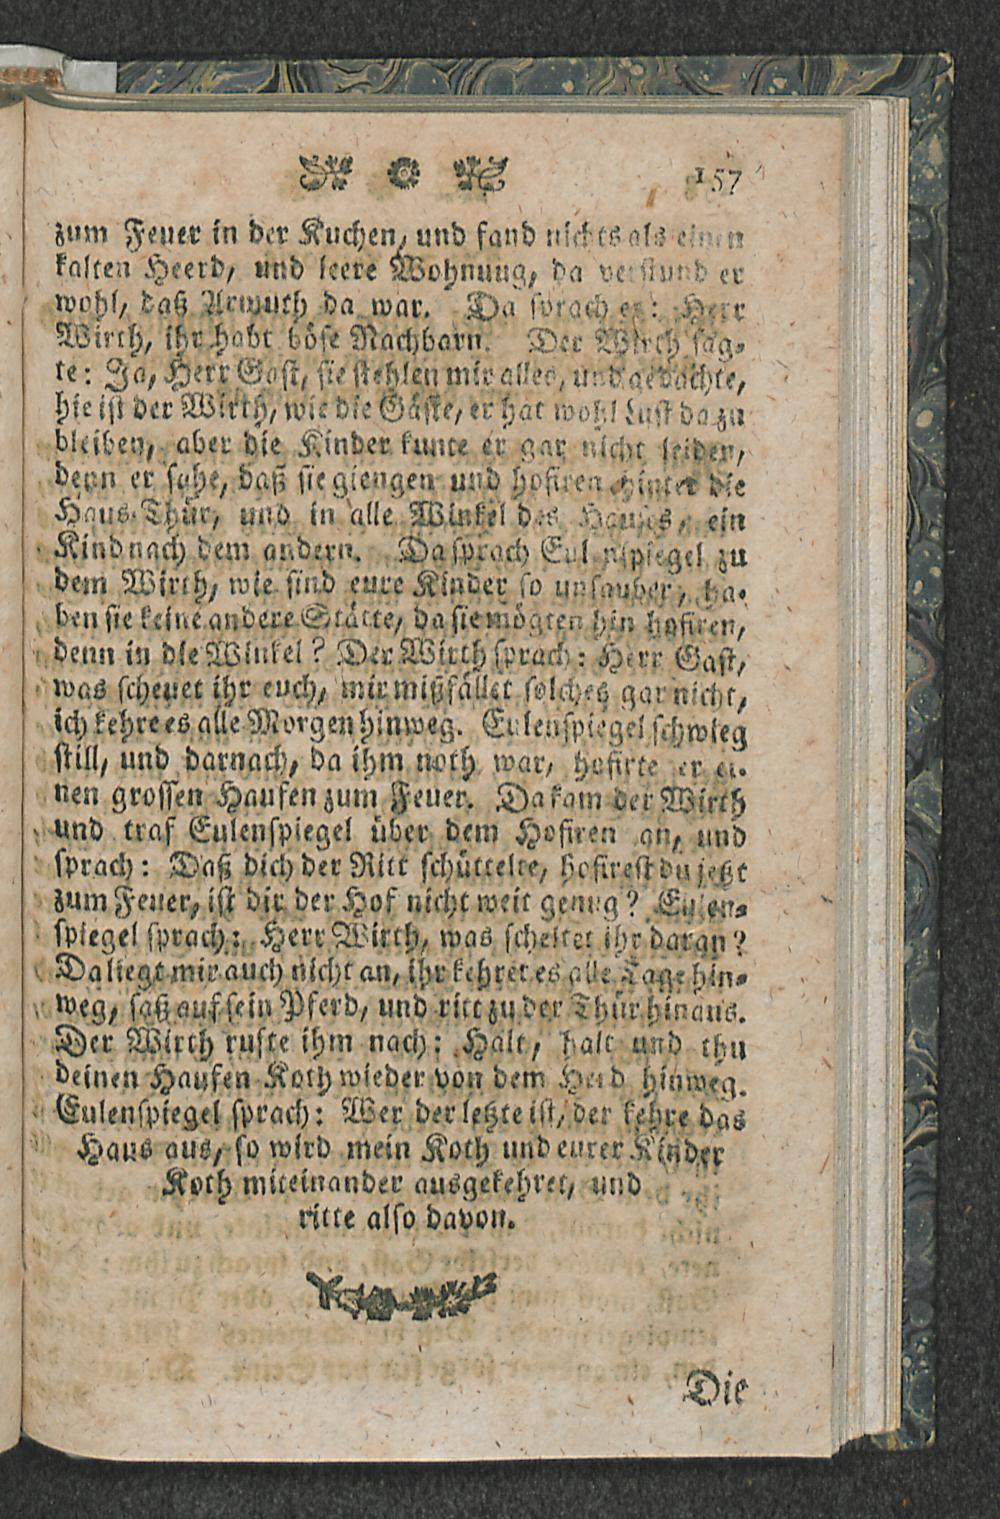 157
zum Feuer in der Kuchen, und fand nichts als einen
kalten Heerd, und leere Wohnung, da verstund er
wohl, daß Armuth da war. Da sprach er: Herr
Wirth, ihr habt böse Nachbarn. Der Wirth sag-
te: Ja, Herr Gast, sie stehlen mir alles, und gedachte,
hie ist der Wirth, wie die Gäste, er hat wohl Lust da zu
bleiben, aber die Kinder kunte er gar nicht leiden,
denn er sahe, daß sie giengen und hofiren hinter die
Haus-Thür, und in alle Winkel des Hauses, ein
Kind nach dem andern. Da sprach Eulenspiegel zu
dem Wirth, wie sind eure Kinder so unsauber, ha-
ben sie keine andere Stätte, da sie mögten hin hofiren,
denn in die Winkel? Der Wirth sprach: Herr Gast,
was scheuet ihr euch, mir mißfället solches gar nicht,
ich kehre es alle Morgen hinweg. Eulenspiegel schwieg
still, und darnach, da ihm noth war, hofirte er ei-
nen grossen Haufen zum Feuer. Da kam der Wirth
und traf Eulenspiegel über dem Hofiren an, und
sprach: Daß dich der Ritt schüttelte, hofirest du jetzt
zum Feuer, ist dir der Hof nicht weit genug? Eulen-
spiegel sprach: Herr Wirth, was scheltet ihr daran?
Da liegt mir auch nicht an, ihr kehret es alle Tage hin-
weg, saß auf sein Pferd, und ritt zu der Thür hinaus.
Der Wirth rufte ihm nach: Halt, halt und thu
deinen Haufen Koth wieder von dem Herd hinweg.
Eulenspiegel sprach: Wer der letzte ist, der kehre das
Haus aus, so wird mein Koth und eurer Kinder
Koth miteinander ausgekehret, und
ritte also davon.
Die